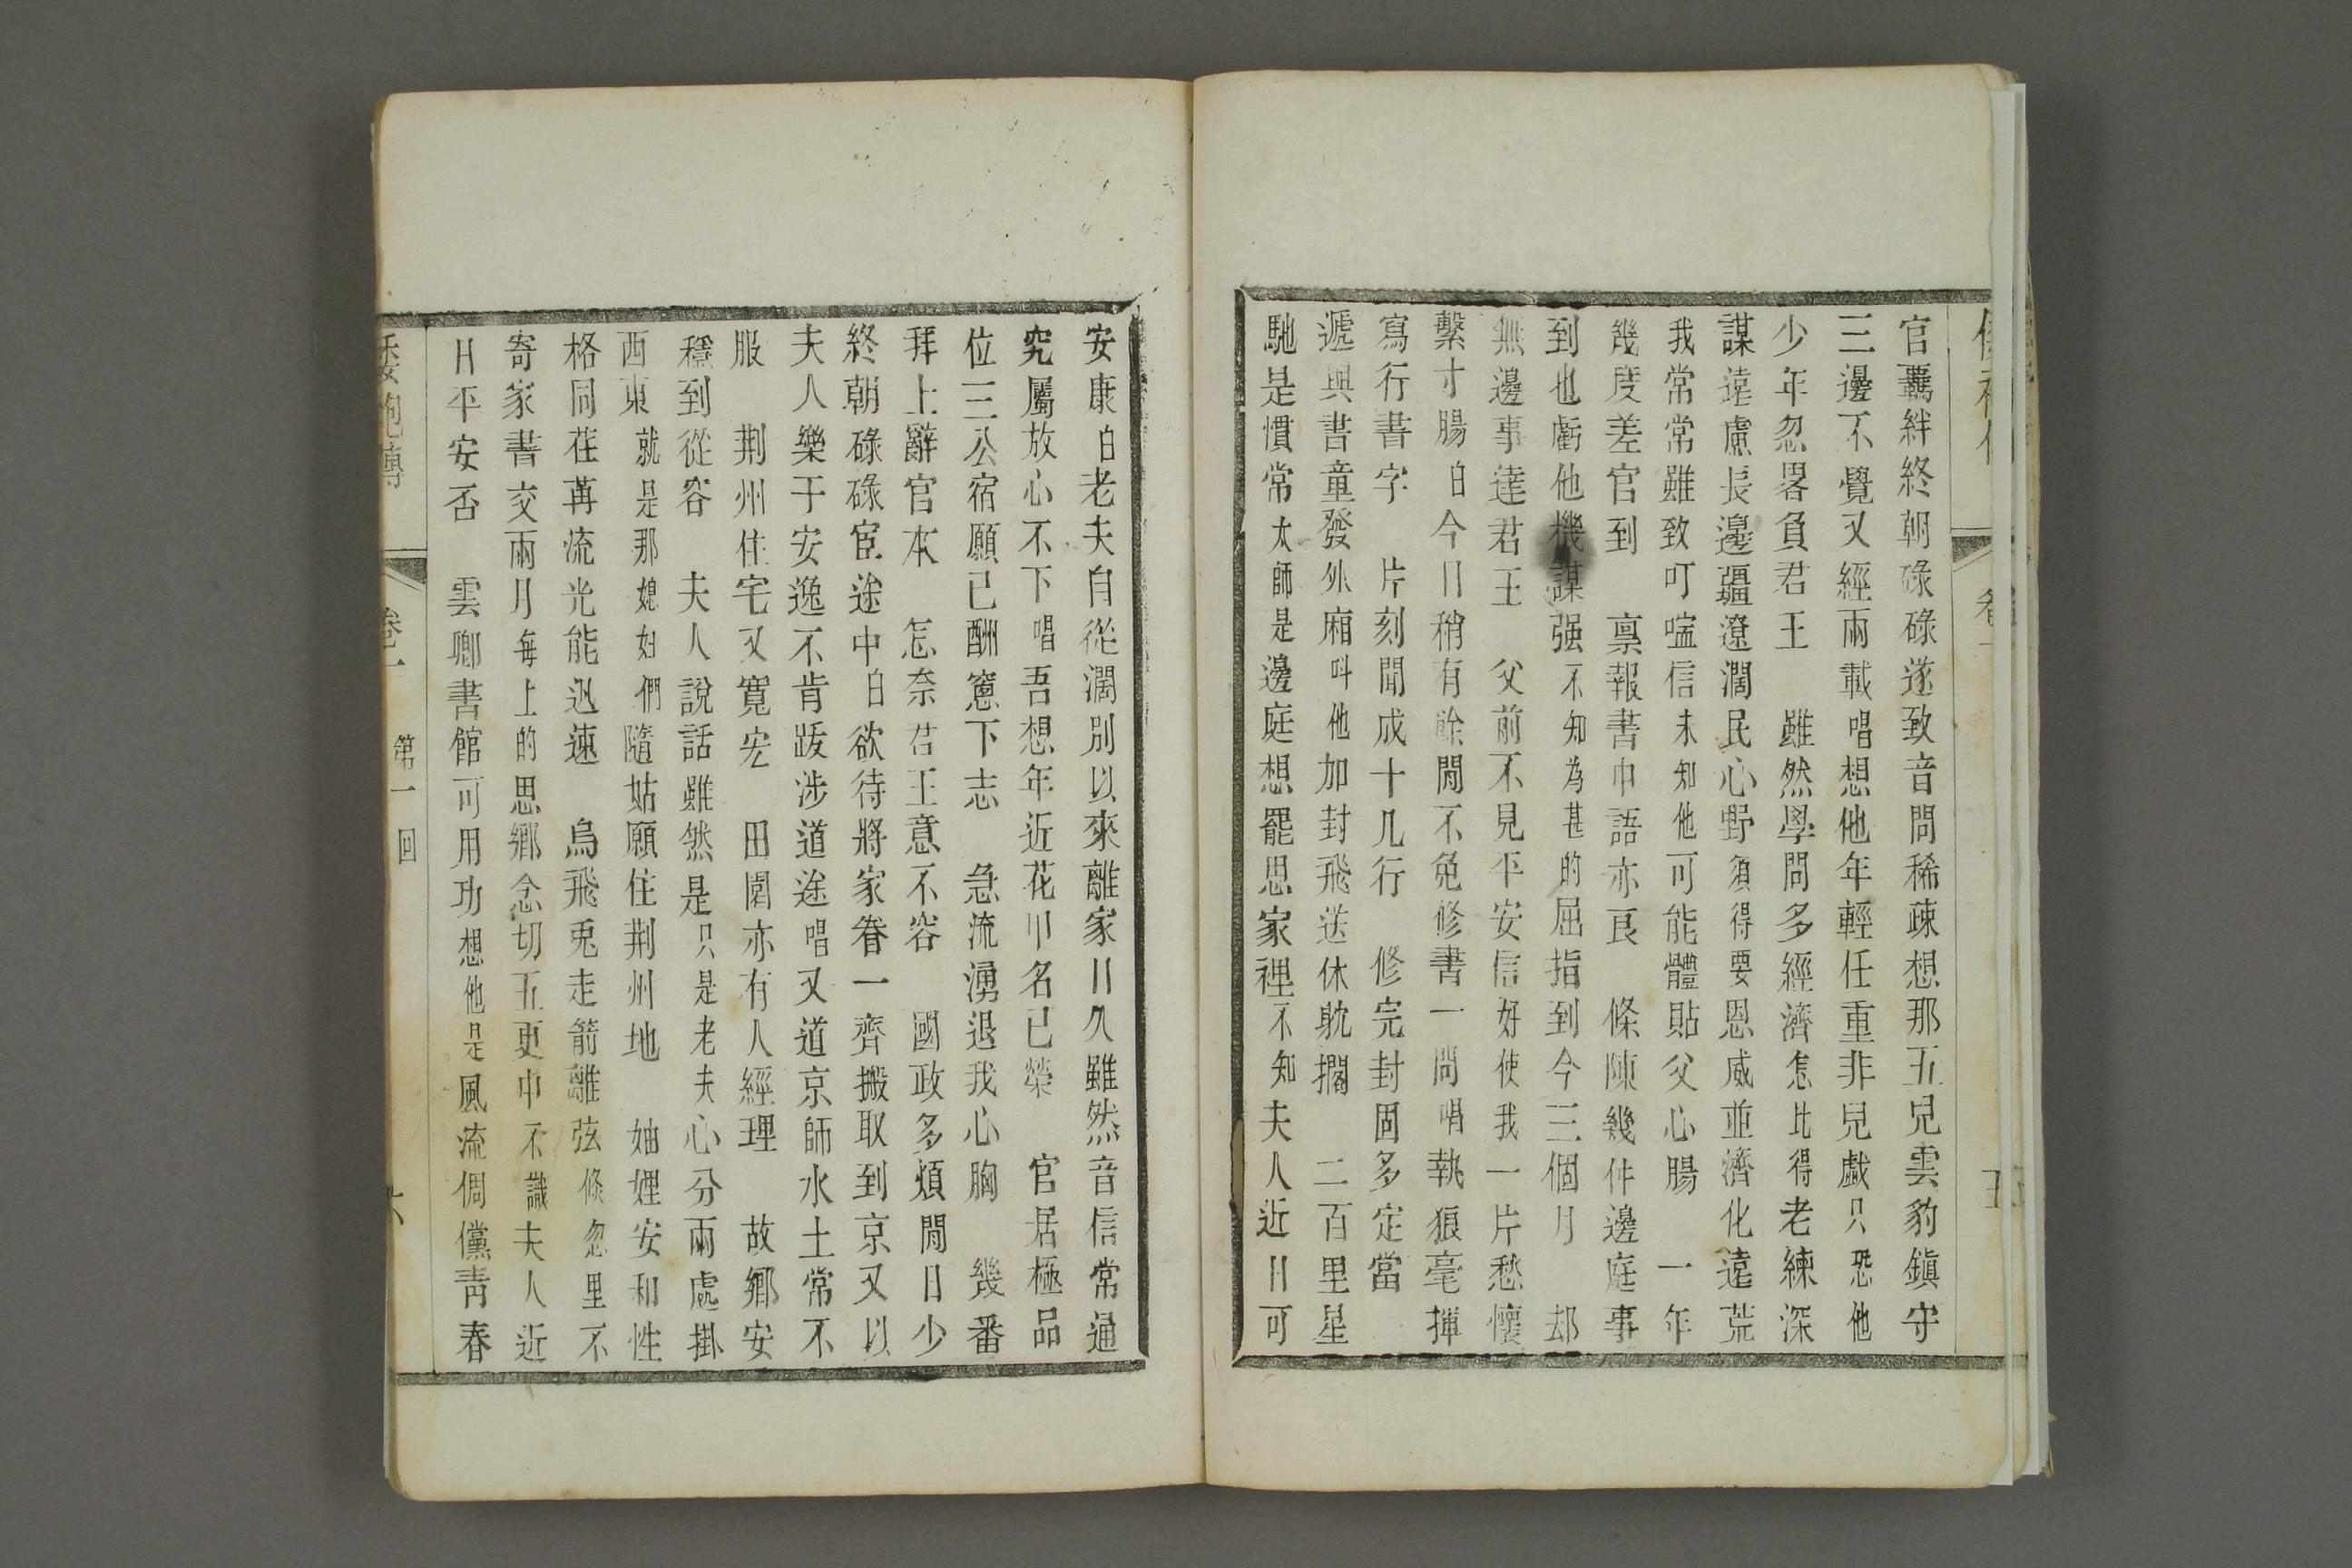 官覊絆終朝碌碌遂致音問稀疎想那五兒雲豹鎮守
三邊不覺又經兩載唱想他年輕任重非兒戲只恐他
少年忽畧負君王　雖然學問多經濟怎比得老練深
謀遠慮長邊疆遼濶民心野須得要恩威並濟化遠荒
我常常雖致叮嚀信未知他可能體貼父心腸　一年
幾度差官到　禀報書中語亦良　條陳幾件邊庭事
到也虧他機謀强不知為甚的屈指到今三個月　却
無邊事達君王　父前不見平安信好使我一片愁懷
繫寸腸白今日稍有餘閒不免修書一問唱執狼毫揮
寫行書字　片刻間成十几行　修完封固多定當
遞與書童發外廂呌他加封飛送休躭擱　二百里星
馳是慣常太師是邊庭想罷思家裡不知夫人近日可
安康白老夫自從濶別以來離家日久雖然音信常通
究屬放心不下唱吾想年近花甲名已榮　官居極品
位三公宿願已酬窻下志　急流湧退我心胸　幾番
拜上辭官本　怎奈君王意不容　國政多煩閒日少
終朝碌碌宦途中白欲待將家眷一齊搬取到京又以
夫人樂于安逸不肯跋涉道途唱又道京師水土常不
服　荆州住宅又寬宏　田園亦有人經理　故鄉安
穩到從容　夫人說話雖然是只是老夫心分兩處掛
西東就是那媳妇們隨姑願住荆州地　妯娌安和性
格同荏苒流光能迅速　烏飛兎走箭離弦倐忽里不
寄家書交兩月每上的思鄉念切五更中不識夫人近
日平安否　雲卿書館可用功想他是風流倜儻靑春
倭袍傳
卷一
第一回
六
卷一
五